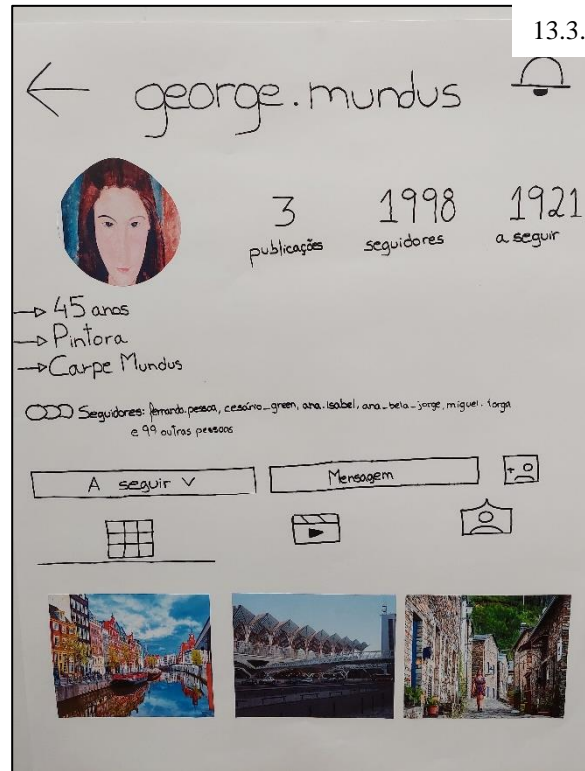 13.3.
george.mundus
3 1998 1921
publicações seguidores a seguir
→ 45 anos
→ Pintora
→ Carpe Mundus
Seguidores: fernando.pessoa, cesário_green, ana.isabel, ana_bela_jorge, miguel.torga
e 99 outras pessoas
A seguir V Mensagem